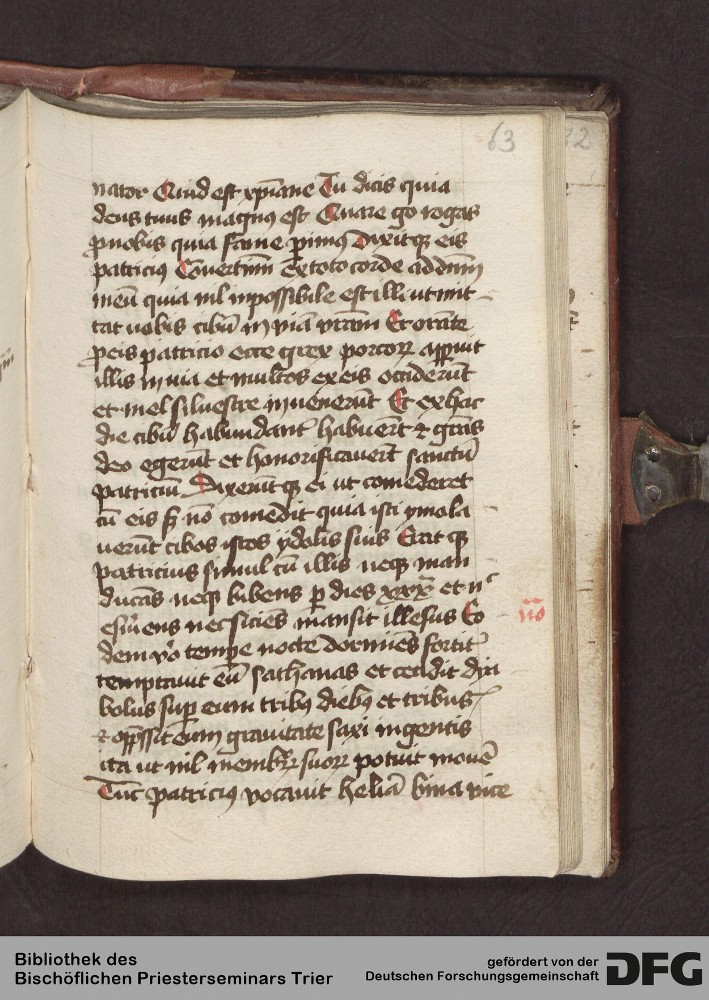 63
32
nator Quid est xpiane Tu dicis quia
deus tuus magnus est Quare go rogas
p nobis quia fame perimus Dixitque eis
patricius Convertimini Ex toto corde ad dnm
meu quia nil inpossibile est illi ut mit
tat vobis cibu in via vram Et orante
p eis patricio ecce grex porcorum apparuit
illis in via et multos ex eis occiderut
et mel silvestre invenerut Et ex hac
die cibu habundant habuert et gras
deo egerut et honorificavert sanctu
patriciu Dixerutque ei ut comederet
cu eis sed no comedit quia isti ymola
verut cibos istos ydolis suis Erat
patricius simul cu illis neque man
ducas neque bibens per dies xxx et
esuriens nec siciens mansit illesus Eo
no
dem vero tempe nocte dormiens fortiter
temptavit eu sathanas et cecidit dya
bolus super eum tribus diebus et tribus
et oppressit eum gravitate saxi ingentis
ita ut nil membrorum suorum potuit move
Tuc patricius vocavit helia bina vice
Bibliothek des
Bischöflichen Priesterseminars Trier
gefördert von der
Deutschen Forschungsgemeinschaft
DFG